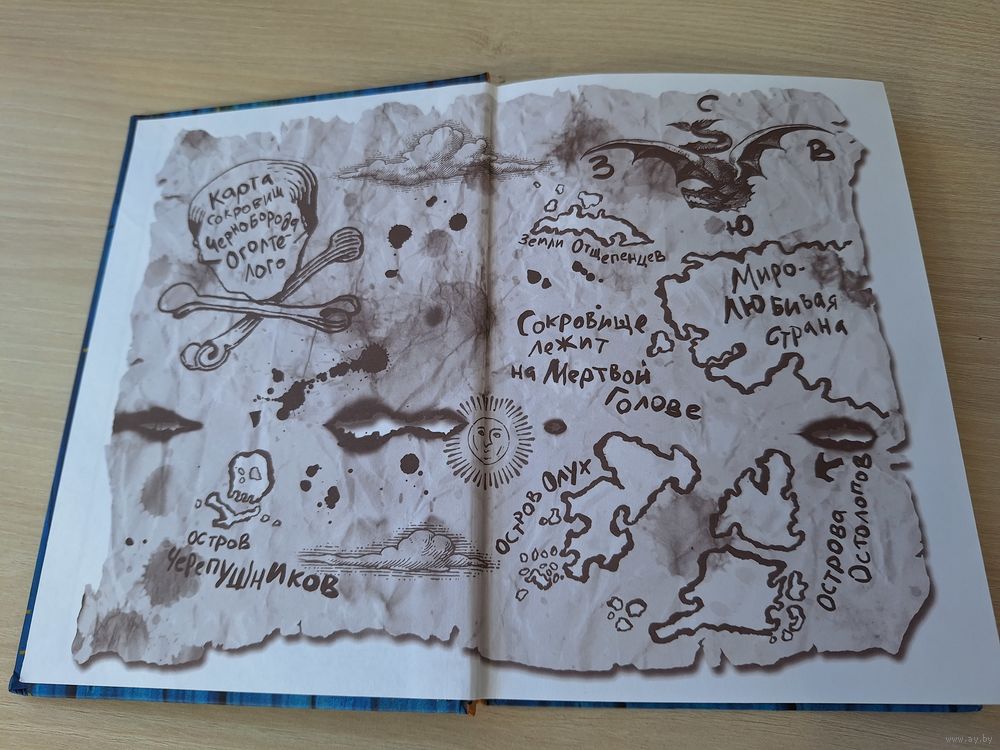 Карта
сокровищ
Черноборода
Оголте-
лого
С
З
В
Ю
Земли Отщепенцев
Миро-
любивая
страна
Сокровище
лежит
на Мертвой
Голове
остров
Черепушников
остров Олух
Острова
Остолопов
www.ay.by